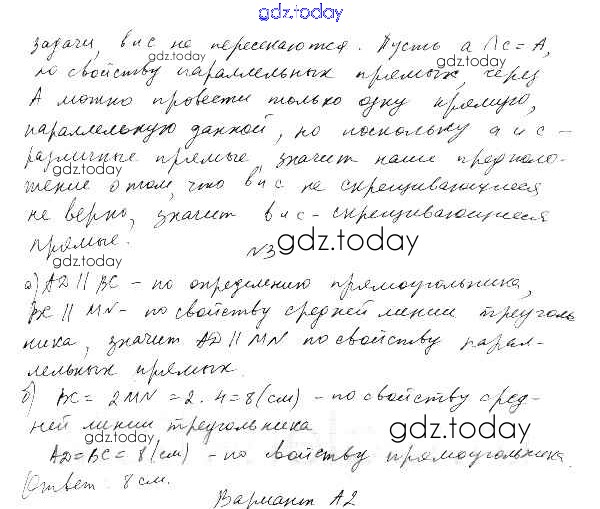 gdz.today
задачи, в и с не пересекаются. Пусть a ∩ c = A,
gdz.today
по свойству параллельных прямых, через
gdz.today
А можно провести только одну прямую,
параллельную данной, но поскольку а и с –
gdz.today
различные прямые, значит наше предполо-
gdz.today
жение о том, что в и с не скрещивающиеся
не верно, значит в и с – скрещивающиеся
прямые.
N3 gdz.today
а) AD || BC – по определению прямоугольника,
BC || MN – по свойству средней линии треуголь
ника, значит AD || MN по свойству парал-
лельных прямых.
б) BC = 2MN = 2 · 4 = 8 (см) – по свойству сред-
ней линии треугольника
gdz.today gdz.today
AD = BC = 8 (см) – по свойству прямоугольника.
Ответ: 8 см.
Вариант А2